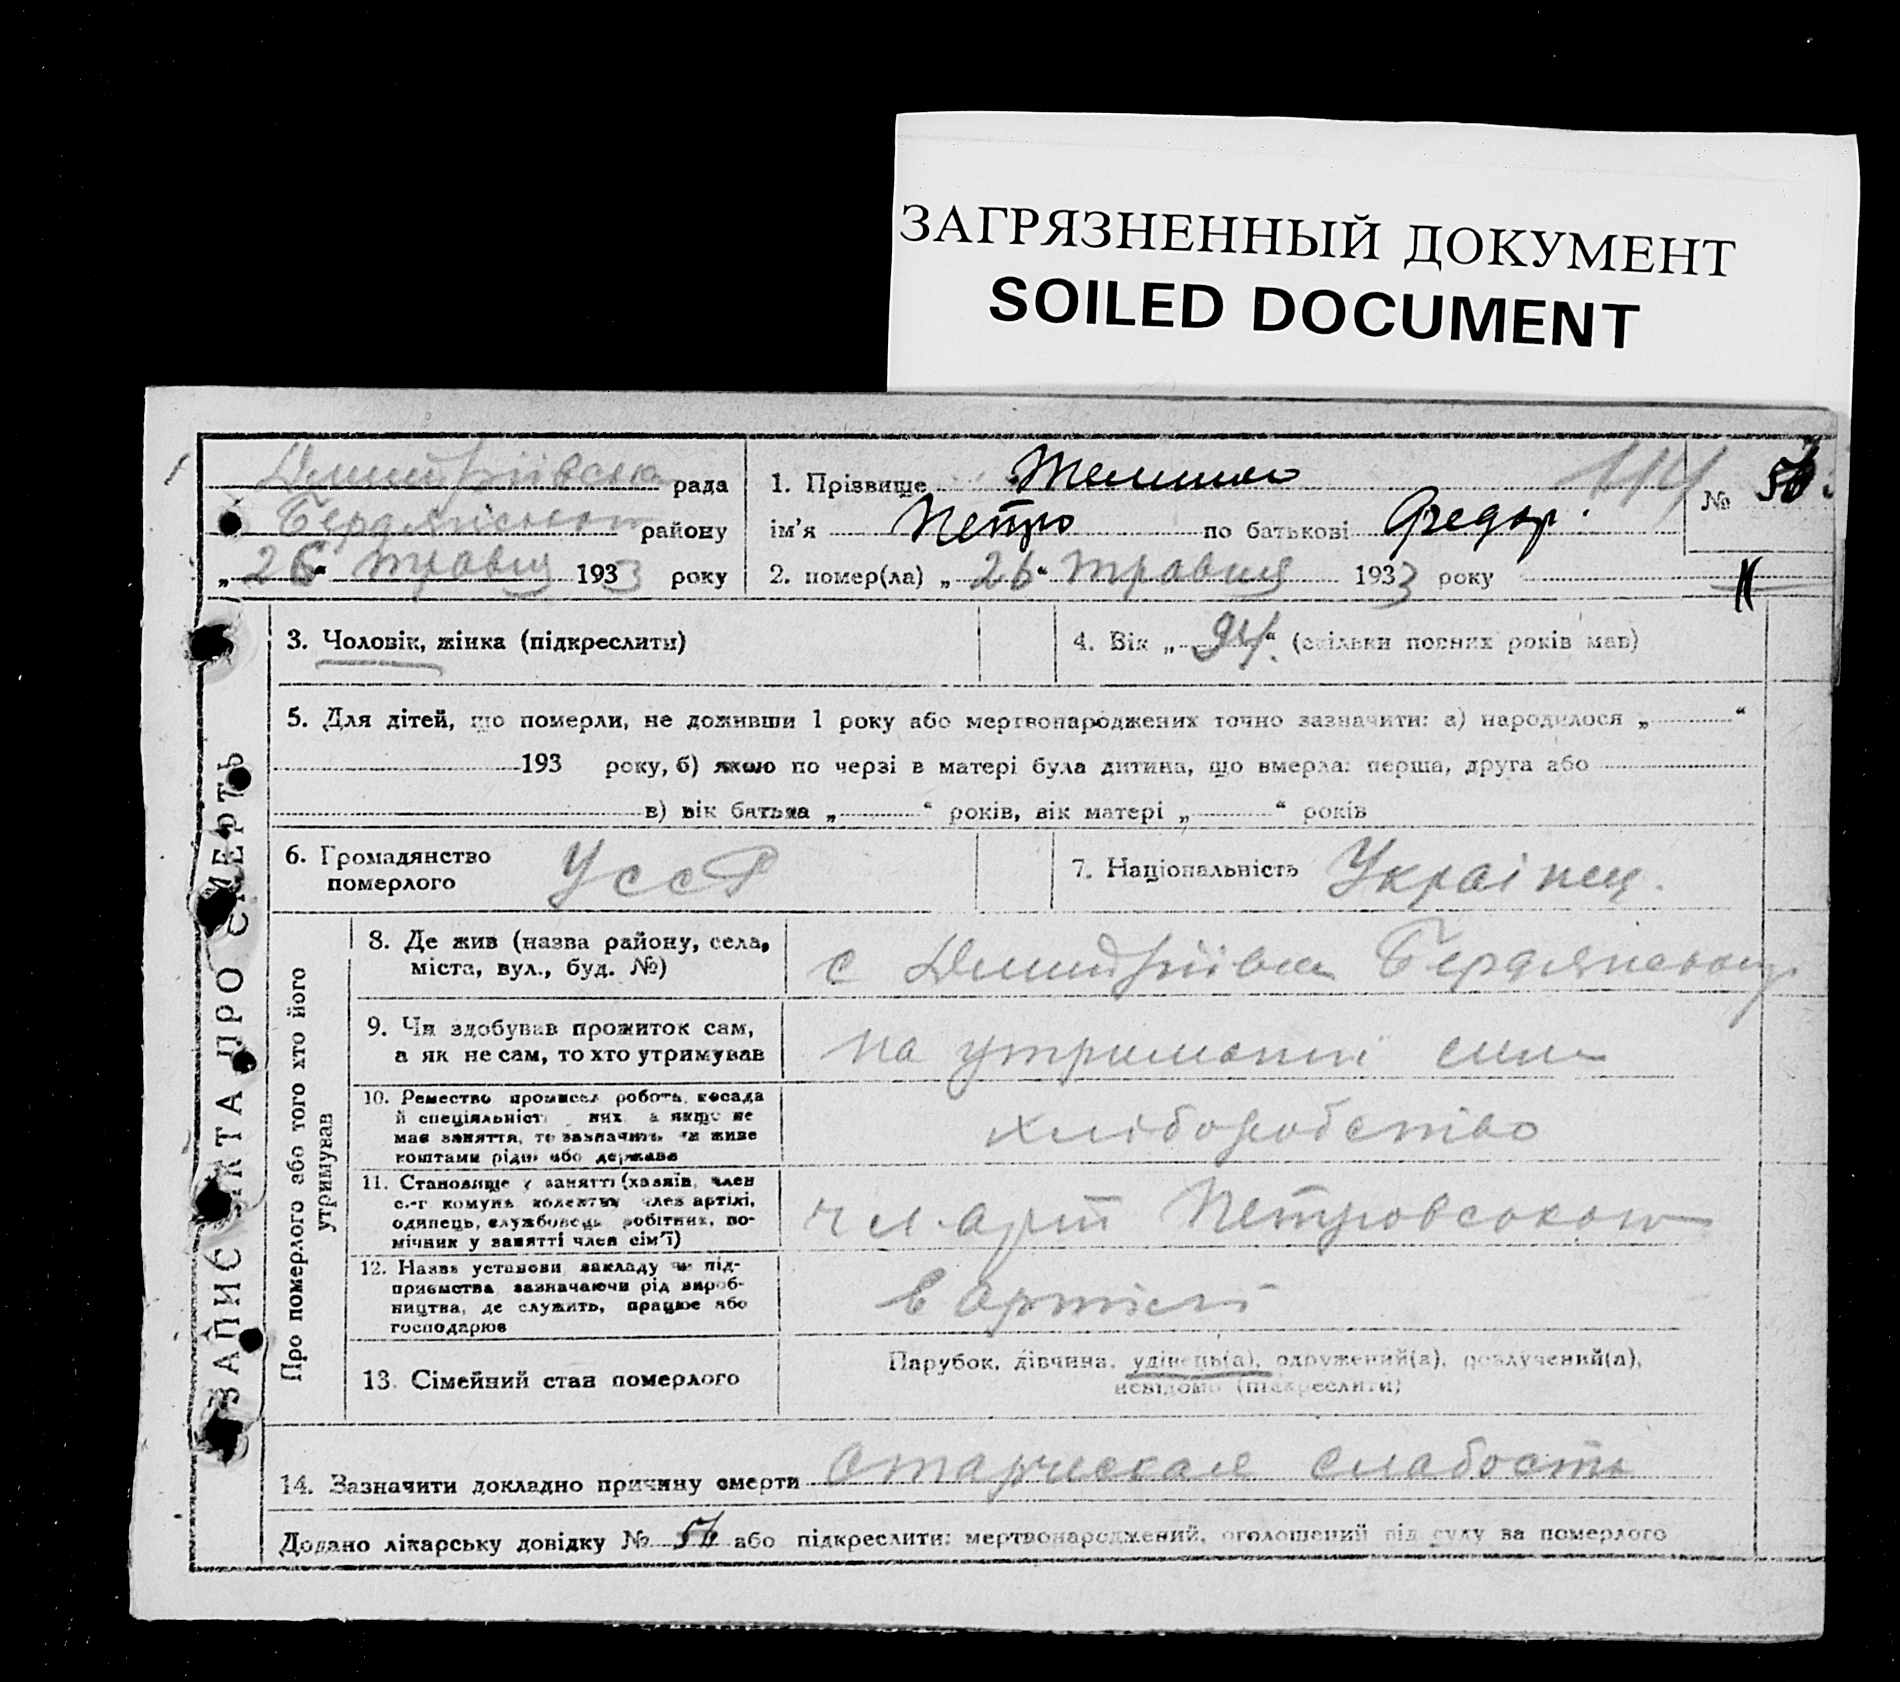 ЗАГРЯЗНЕННЫЙ ДОКУМЕНТ
SOILED DOCUMENT
Дмитріївська рада
Бердянського району
„26“ травня 1933 року
1. Прізвище
114
№ 56
ім'я Петро по батькові Федор.
2. помер(ла) „26“ травня 1933 року
3. Чоловік, жінка (підкреслити)
4. Вік „94“ (скільки повних років мав)
5. Для дітей, що померли, не доживши 1 року або мертвонароджених точно зазначити: а) народилося „ “
193 року, б) якою по черзі в матері була дитина, що вмерла: перша, друга або
в) вік батька „ “ років, вік матері „ “ років
6. Громадянство
померлого
УССР
7. Національність Українец.
ЗАПИС АКТА ПРО СМЕРТЬ
Про померлого або того хто його
утримував
8. Де жив (назва району, села,
міста, вул., буд. №)
с Дмитріївка Бердянського
9. Чи здобував прожиток сам,
а як не сам, то хто утримував
на утриманні сина
10. Ремество промисел робота, посада
й спеціяльність них а якщо не
має заняття, то зазначить чи живе
коштами рідні або держави
хліборобство
11. Становище у занятті (хазяїн, член
с.-г комуни колективу член артілі,
одинець, службовець робітник, по-
мічник у занятті член сім'ї)
чл. арт Петровського
12. Назва установи закладу чи під-
приємства зазначаючи рід вироб-
ництва, де служить, працює або
господарює
в артілі
13. Сімейний стан померлого
Парубок, дівчина, удівець(а), одружений(а), розлучений(а),
невідомо (підкреслити)
14. Зазначити докладно причину смерти старческая слабость
Додано лікарську довідку № 56 або підкреслити: мертвонароджений, оголошений від суду за померлого